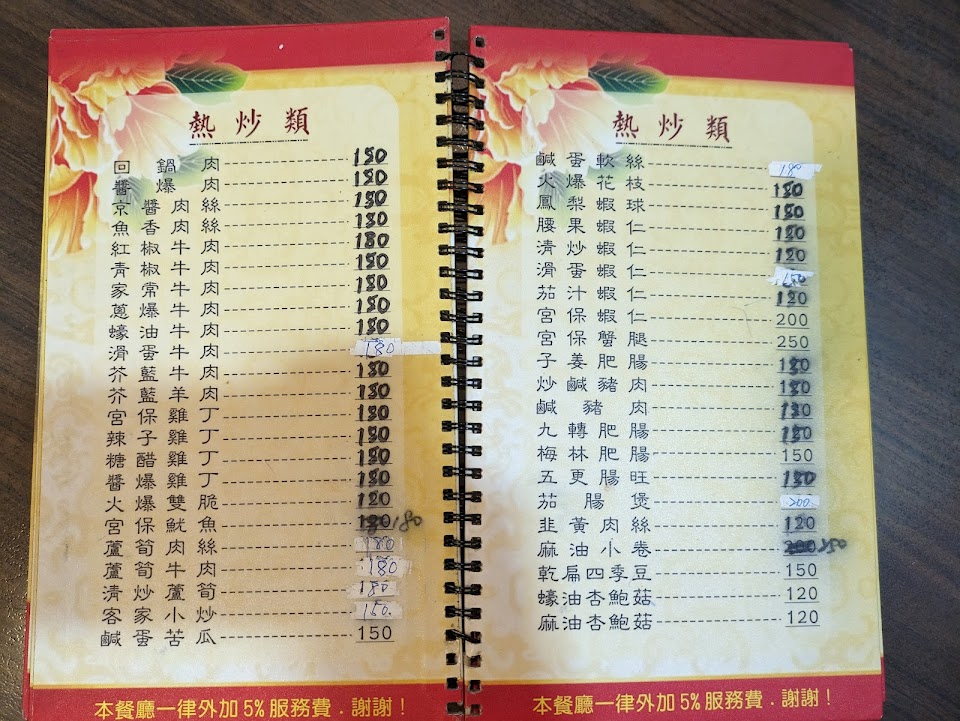 熱炒類
回鍋肉 150
醬爆肉
京醬肉絲
魚香肉絲
紅椒牛肉
青椒牛肉
家常牛肉
蔥爆牛肉
蠔油牛肉
滑蛋牛肉 180
芥藍牛肉
芥藍羊肉
宮保雞丁
辣子雞丁
糖醋雞丁
醬爆雞丁
火爆雙脆 120
宮保魷魚 180
蘆筍肉絲 180
蘆筍牛肉 180
清炒蘆筍 180
客家小炒 150
鹹蛋苦瓜 150
本餐廳一律外加5%服務費．謝謝！
熱炒類
鹹蛋軟絲 180
火爆花枝
鳳梨蝦球
腰果蝦仁
清炒蝦仁
滑蛋蝦仁
茄汁蝦仁
宮保蝦仁 200
宮保蟹腿 250
子姜肥腸
炒鹹豬肉
鹹豬肉
九轉肥腸
梅林肥腸 150
五更腸旺
茄腸煲 200
韭黃肉絲 120
麻油小卷 250
乾扁四季豆 150
蠔油杏鮑菇 120
麻油杏鮑菇 120
本餐廳一律外加5%服務費．謝謝！